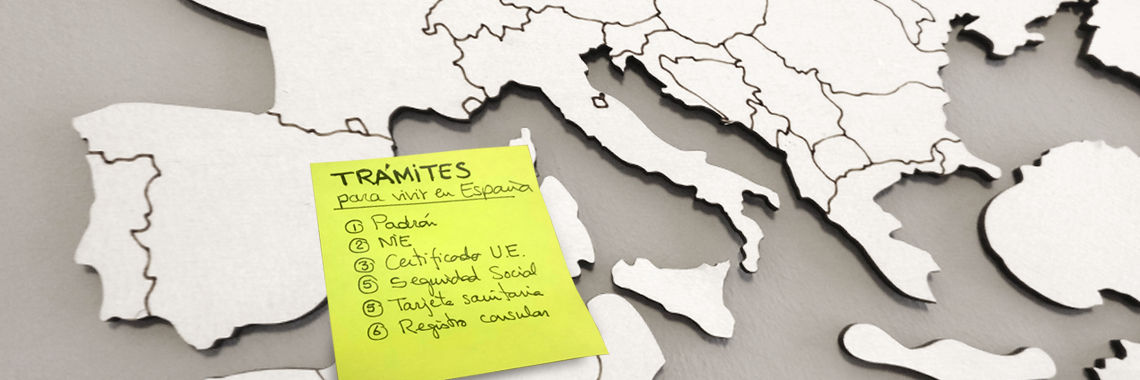 TRÁMITES
para vivir en España
① Padrón
② NIE
③ Certificado U.E.
⑤ Seguridad Social
⑤ Tarjeta sanitaria
⑥ Registro consular